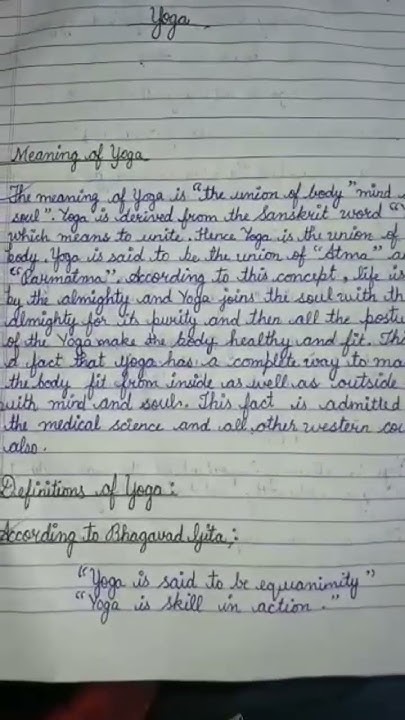 Yoga
Meaning of Yoga
The meaning of Yoga is "the union of body" mind
soul". Yoga is derived from the Sanskrit word "
which means to unite. Hence Yoga is the union of
body. Yoga is said to be the union of "Atma" a
"Parmatma". According to this concept, life is
by the almighty and Yoga joins the soul with th
almighty for its purity and then all the postu
of the Yoga make the body healthy and fit. Thi
a fact that yoga has a complete way to ma
the body fit from inside as well as outside
with mind and souls. This fact is admitted
the medical science and all other western cou
also.
Definitions of Yoga:
According to Bhagavad Gita,:
"Yoga is said to be equanimity"
"Yoga is skill in action."